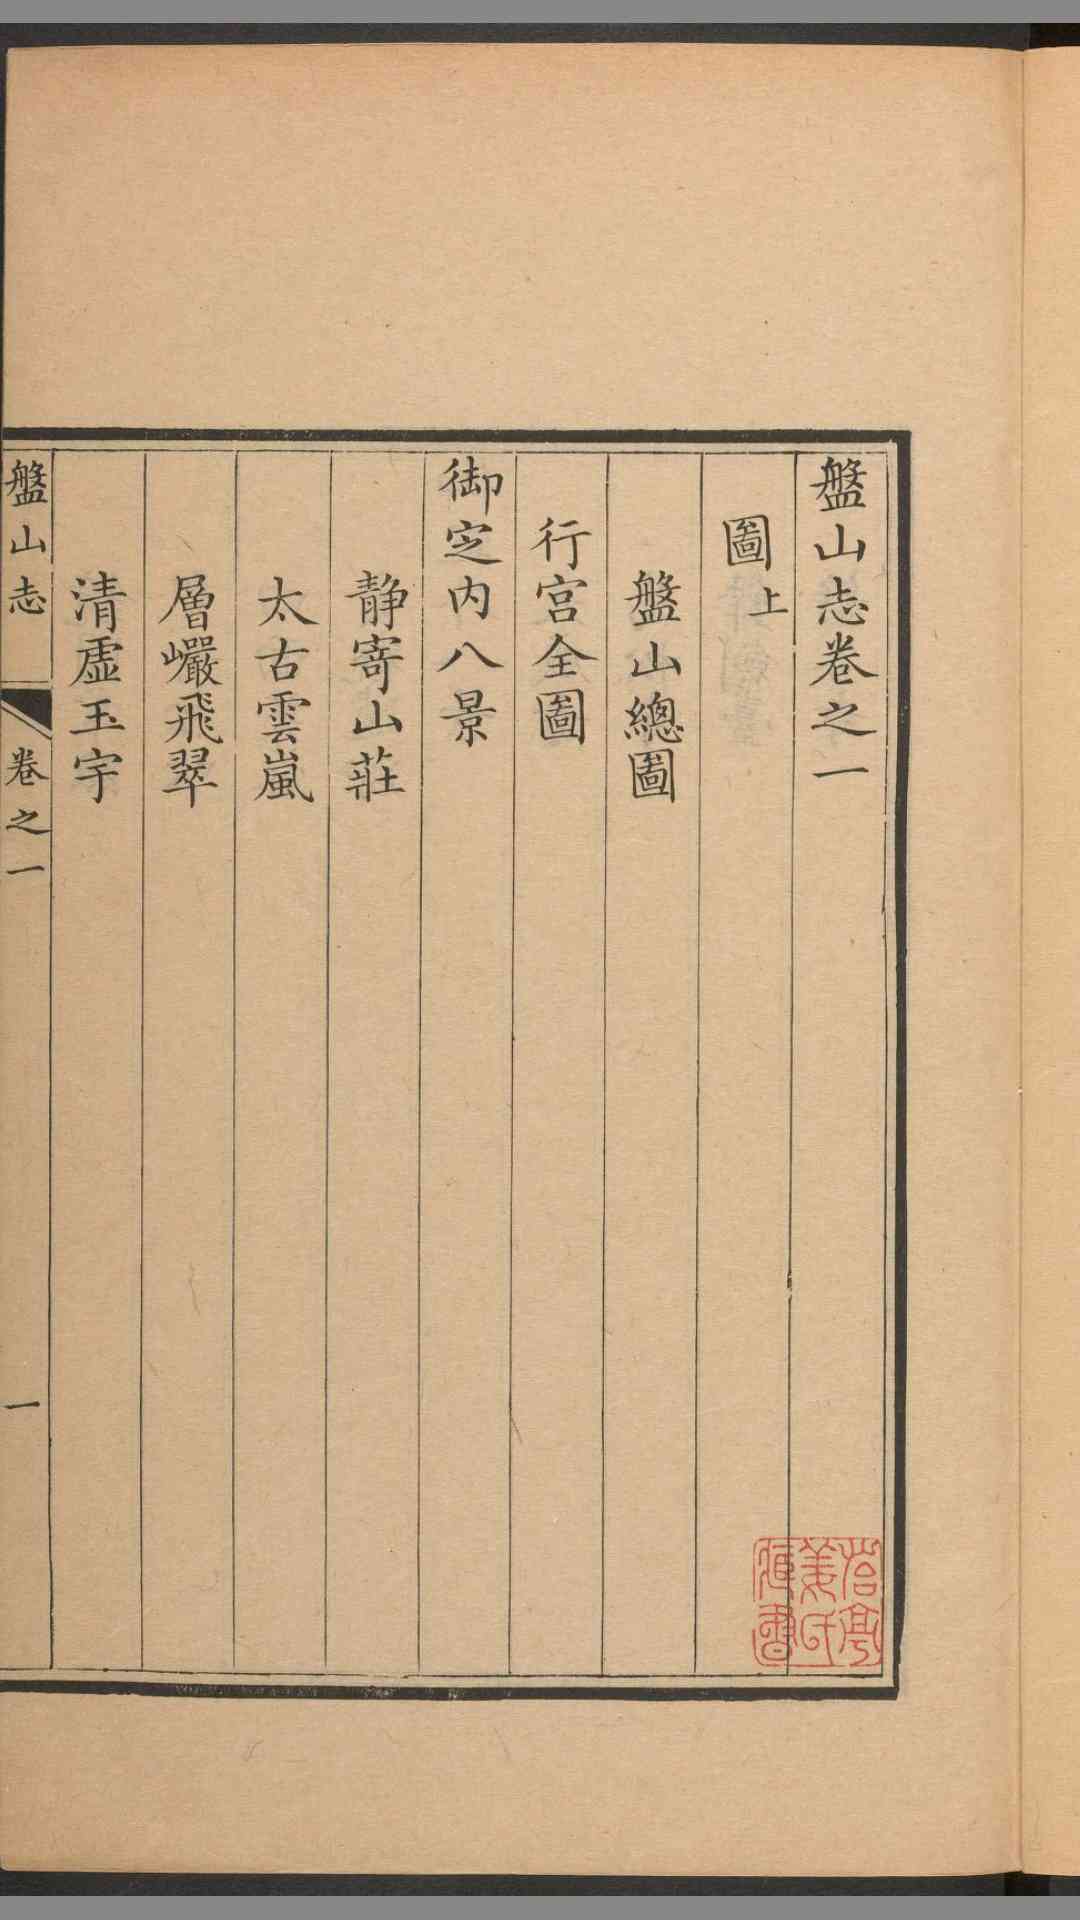 盤山志卷之一
圖上
盤山總圖
行宮全圖
御定內八景
靜寄山莊
太古雲嵐
層巘飛翠
清虛玉宇
盤山志
卷之一
一
姜氏